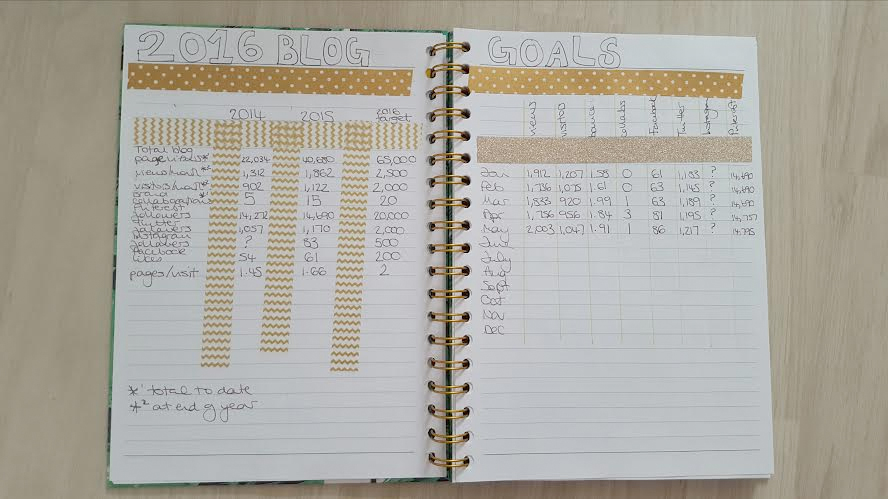 2016 BLOG
2014 2015 2016 target
Total blog
page views*¹ 22,034 40,680 65,000
views/month*² 1,312 1,862 2,500
visitors/month*² 902 1,122 2,000
brand
collaborations 5 15 20
pinterest
followers 14,272 14,690 20,000
twitter
followers 1,057 1,170 2,000
instagram
followers ? 83 500
facebook
likes 54 61 200
pages/visit 1.45 1.66 2
*¹ total to date
*² at end of year
GOALS
views visitors collabs Facebook Twitter Instagram Pinterest
Jan 1,912 1,207 1.58 0 61 1,183 ? 14,690
Feb 1,736 1,075 1.61 0 63 1,145 ? 14,690
Mar 1,833 920 1.99 1 63 1,189 ? 14,690
Apr 1,756 956 1.84 3 81 1,195 ? 14,757
May 2,003 1,047 1.91 1 86 1,217 ? 14,795
June
July
Aug
Sept
Oct
Nov
Dec